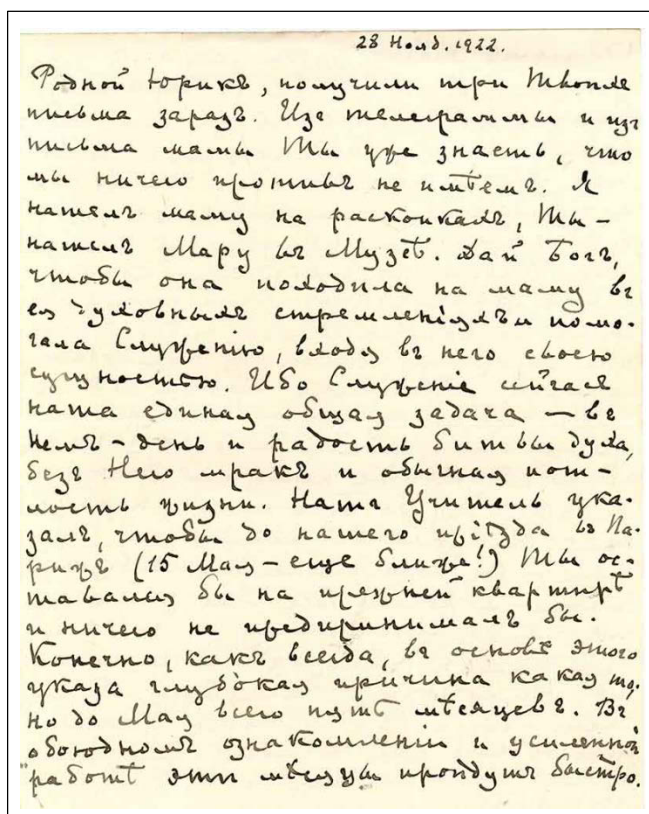 28 Нояб. 1922.
Родной Юрикъ, получили три Твоихъ
письма заразъ. Изъ телеграммы и изъ
письма мамы Ты уже знаешь, что
мы ничего противъ не имѣемъ. Я
нашелъ маму на раскопкахъ, Ты —
нашелъ Мару въ Музеѣ. Дай Богъ,
чтобы она походила на маму въ
ея духовныхъ стремленіяхъ и помо-
гала Служенію, входя въ него своею
сущностью. Ибо Служеніе сейчасъ
наша единая общая задача — въ
Немъ — день и радость битвы духа,
безъ Него мракъ и обычная пош-
лость жизни. Нашъ Учитель ука-
залъ, чтобы до нашего пріѣзда въ Па-
рижъ (15 Мая — еще ближе!) Ты ос-
тавался бы на прежней квартирѣ
и ничего не предпринималъ бы.
Конечно, какъ всегда, въ основѣ этого
указа глубокая причина какая то,
но до Мая всего пять мѣсяцевъ. Въ
обоюдномъ ознакомленіи и усиленной
работѣ эти мѣсяцы пройдутъ быстро.